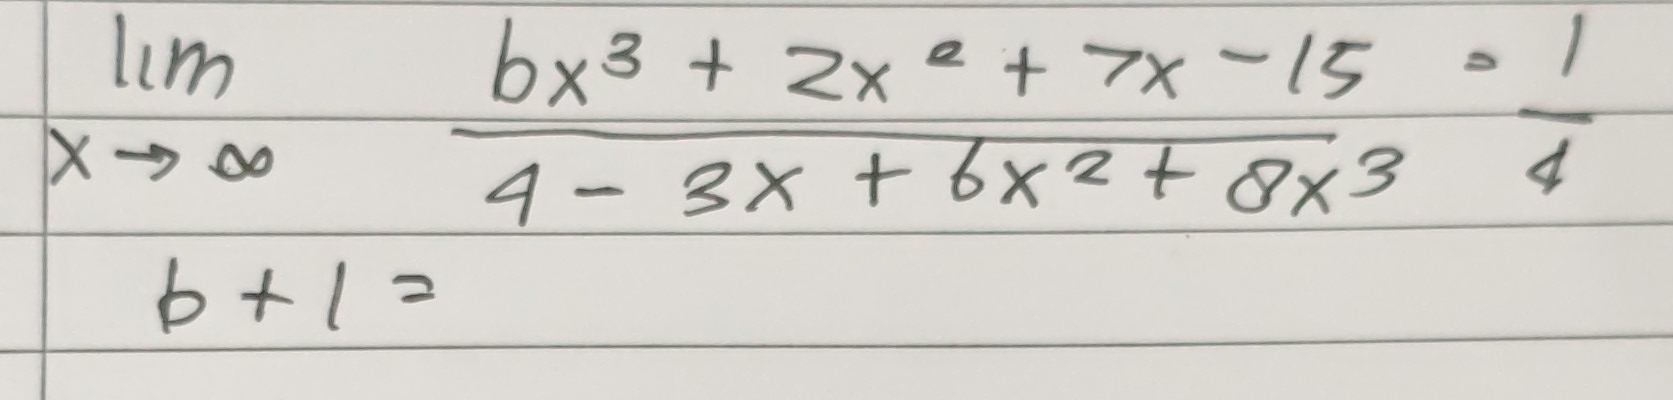 lim bx³ + 2x² + 7x - 15 = 1
x → ∞ 4 - 3x + 6x² + 8x³ 4
b + 1 =